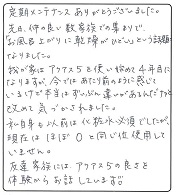 定期メンテナンスありがとうございました。
先日、仲の良い数家族での集まりで、
お風呂上がりに乾燥がひどいという話題に
なりました。
我が家はアクアス5を使い始め4年目に
なりますが、今ではあたり前のように感じて
いますが本当はずいぶん違いがあるんだナァと
改めて気づかされました。
私自身も以前は化粧水必須でしたが、
現在はほぼ0と同じ位使用して
いません。
友達家族には、アクアス5の良さを
体験からお話しています。